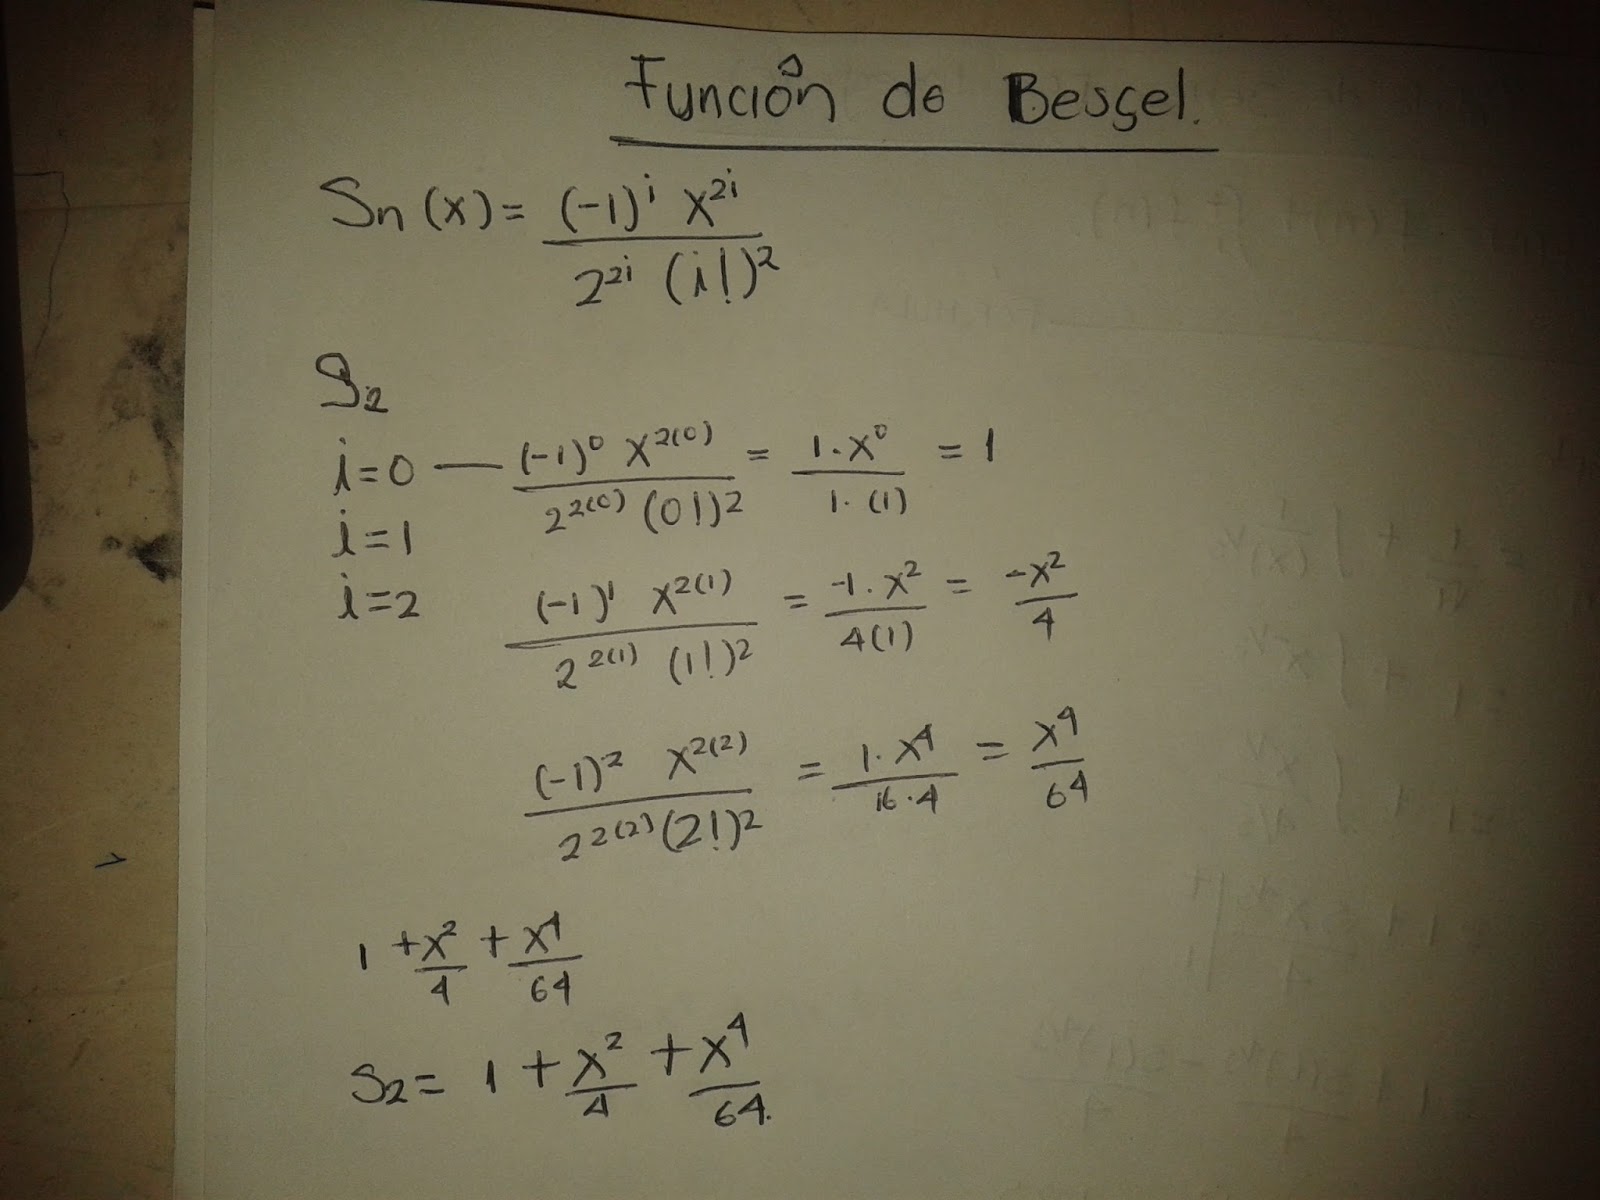 Función de Bessel.
Sn(x) = (-1)^i x^2i / 2^2i (i!)^2
S2
i=0 — (-1)^0 x^2(0) / 2^2(0) (0!)^2 = 1·x^0 / 1·(1) = 1
i=1
i=2
(-1)^1 x^2(1) / 2^2(1) (1!)^2 = -1·x^2 / 4(1) = -x^2 / 4
(-1)^2 x^2(2) / 2^2(2) (2!)^2 = 1·x^4 / 16·4 = x^4 / 64
1 + x^2/4 + x^4/64
S2 = 1 + x^2/4 + x^4/64.